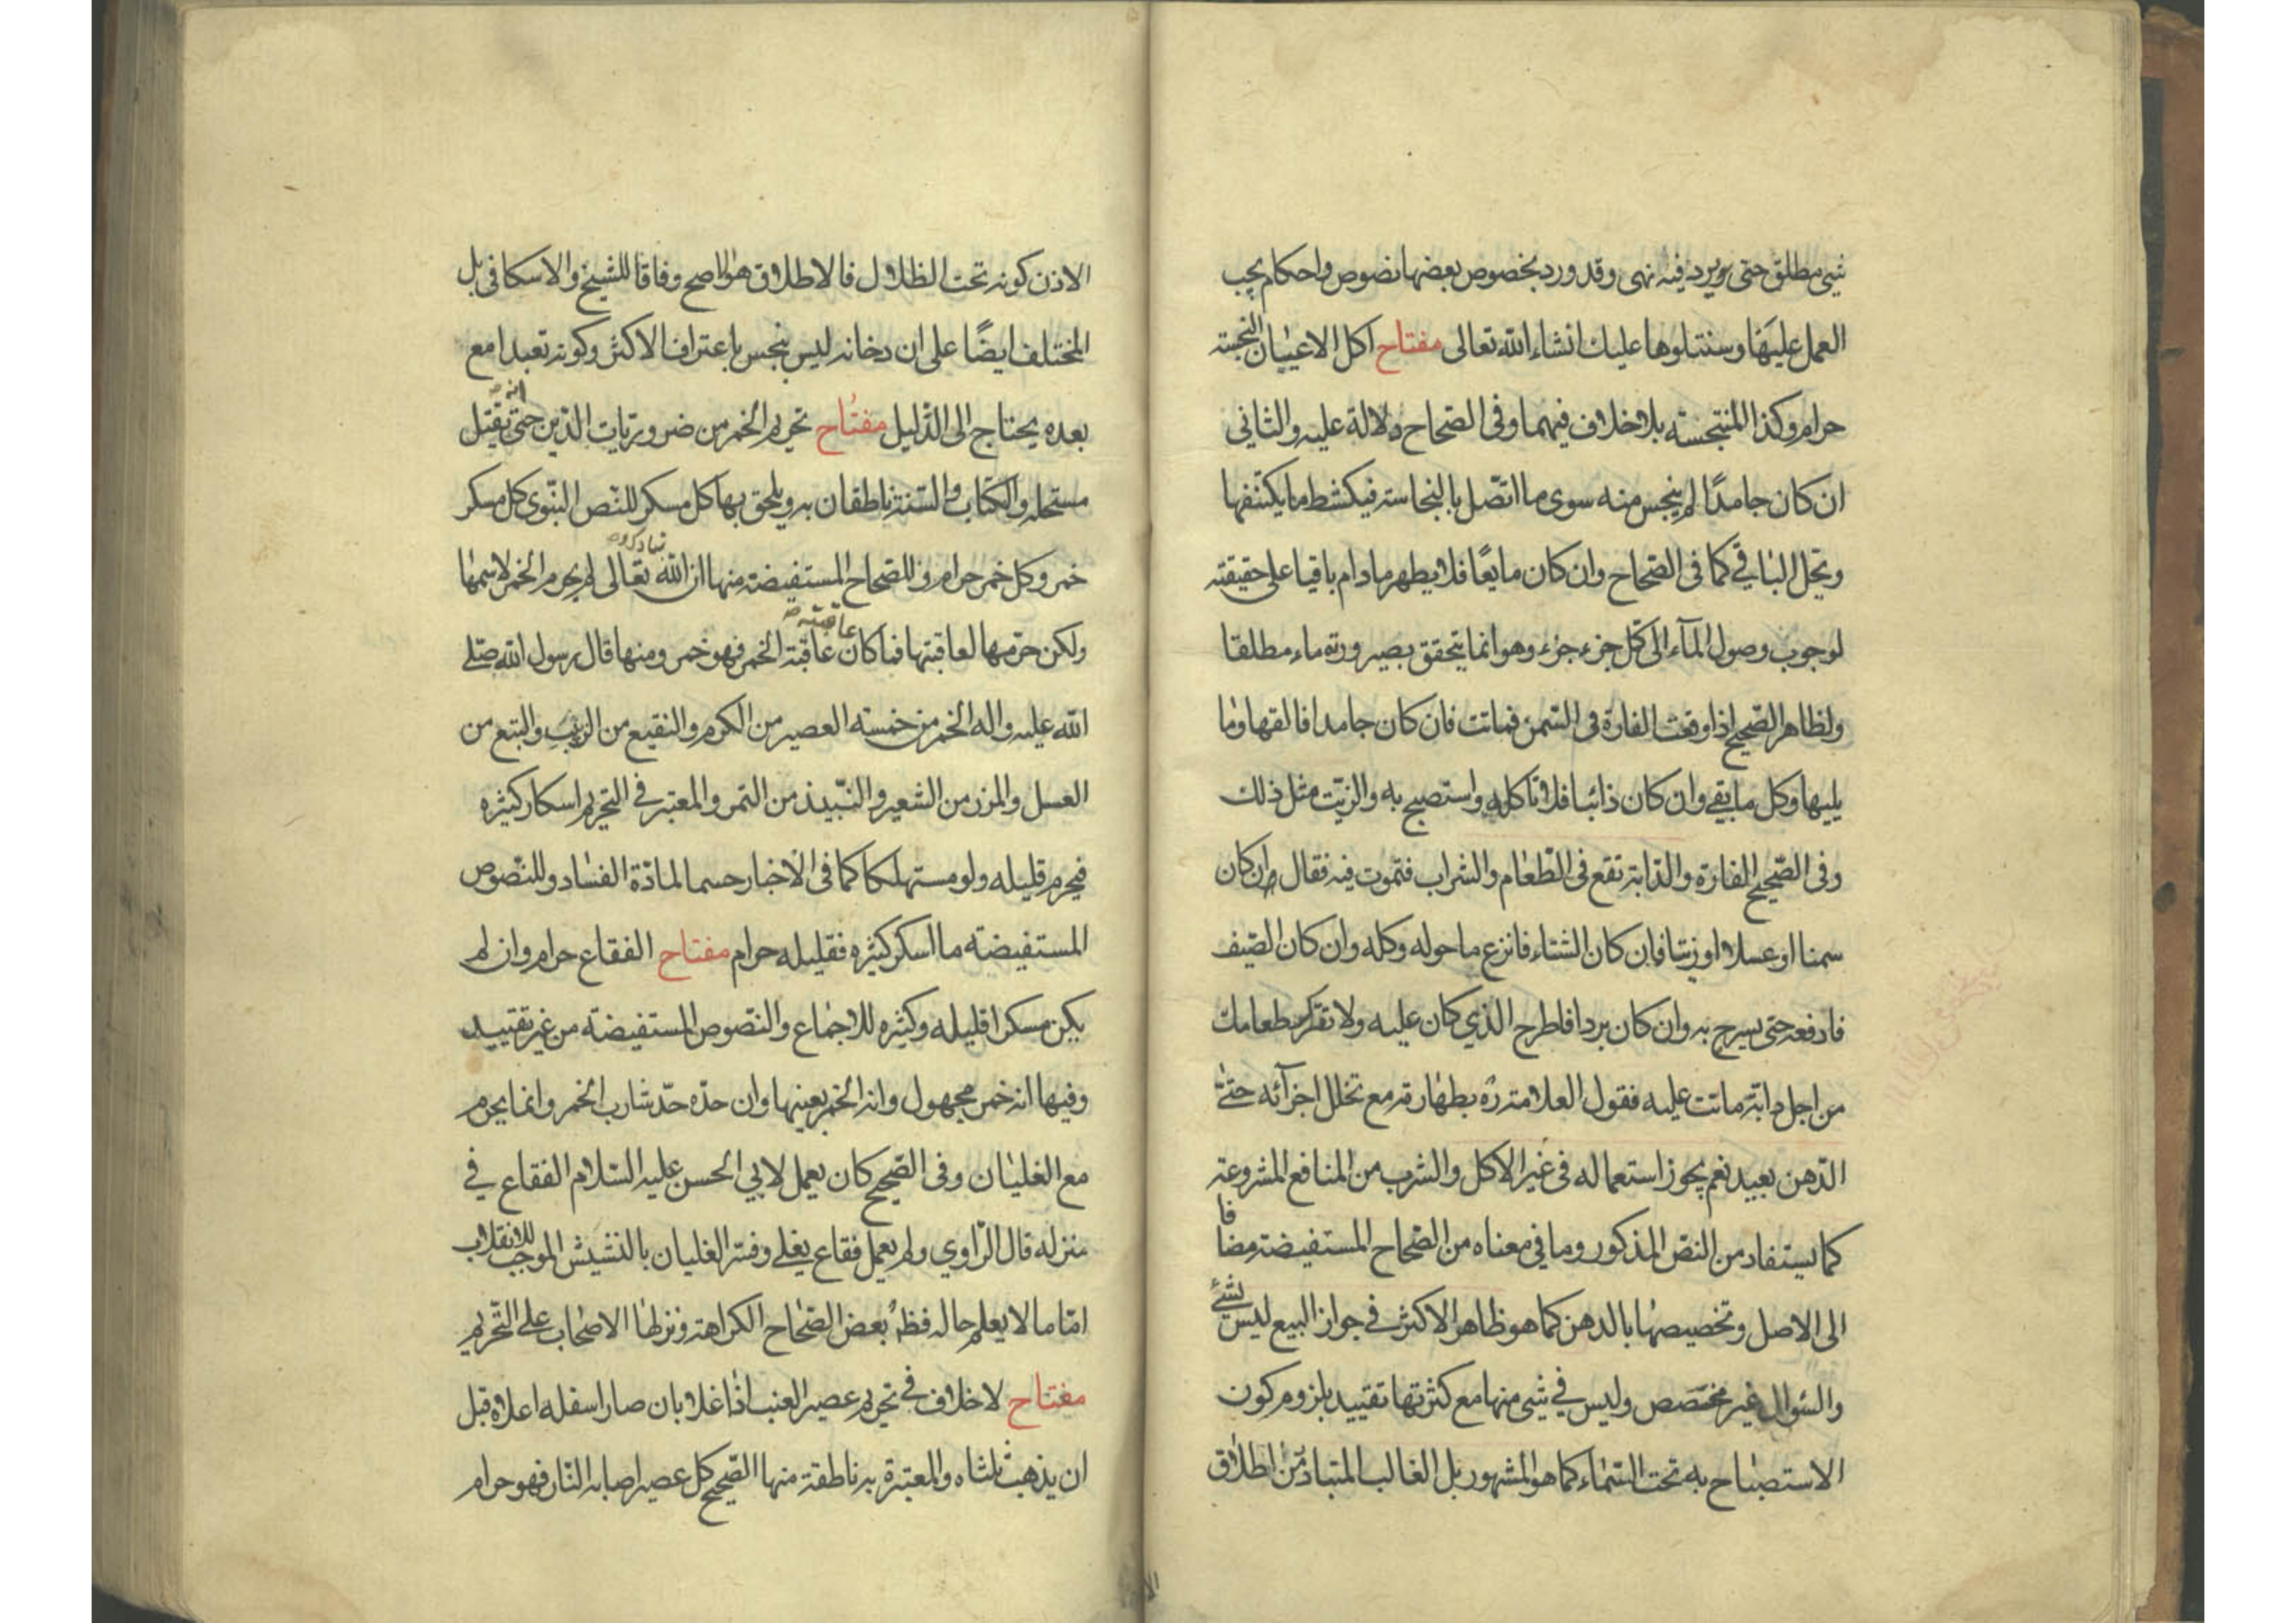 شيء مطلق حتى يرد فيه نهى وقد ورد بخصوص بعضها نصوص واحكام يجب
العمل عليها وسنتلوها عليك انشاء الله تعالى مفتاح اكل الاعيان النجسة
حرام وكذا المنتجسة بلا خلاف فيهما وفى الصحاح دلالة عليه والثانى
ان كان جامدًا لم ينجس منه سوى ما اتصل بالنجاسة فيكشط ما يكتنفها
وتحل الباقي كما فى الصحاح وان كان مايعًا فلا يطهر ما دام باقيا على حقيقته
لوجوب وصول المآء الى كل جزء جزء وهو انما يتحقق بصيرورته ماء مطلقا
ولظاهر الصحيح اذا وقعت الفارة فى السمن فماتت فان كان جامدا فالقها وما
يليها وكل ما بقي وان كان ذائبا فلا تاكله واستصبح به والزيت مثل ذلك
وفى الصحيح الفارة والدابة تقع فى الطعام والشراب فتموت فيه فقال ان كان
سمنا او عسلا او زيتا فان كان الشتاء فانزع ما حوله وكله وان كان الصيف
فادفعه حتى يسرج به وان كان بردا فاطرح الذي كان عليه ولا تترك طعامك
من اجل دابة ماتت عليه فقول العلامة ره بطهارته مع تخلل اجزآئه حتى
الدهن بعيد نعم يجوز استعماله فى غير الاكل والشرب من المنافع المشروعة
كما يستفاد من النص المذكور وما في معناه من الصحاح المستفيضة مضافا
الى الاصل وتخصيصها بالدهن كما هو ظاهر الاكثر في جواز البيع ليس بشئ
والسؤال غير مخصص وليس في شيء منها مع كثرتها تقييد بلزوم كون
الاستصباح به تحت السماء كما هو المشهور بل الغالب المتبادر من اطلاق
الاذن كونه تحت الظلال فالاطلاق هو الاصح وفاقا للشيخ والاسكافى بل
المختلف ايضًا على ان دخانه ليس بنجس باعتراف الاكثر وكونه تعبدا مع
بعده يحتاج الى الدليل مفتاح تحريم الخمر من ضروريات الدين حتى انه يقتل
مستحله والكتاب والسنة ناطقان به ويلحق بها كل مسكر للنص النبوى كل مسكر
خمر وكل خمر حرام وللصحاح المستفيضة منها ان الله تعالى لم يحرم الخمر لاسمها
ولكن حرمها لعاقبتها فما كان عاقبته عاقبة الخمر فهو خمر ومنها قال رسول الله صلى
الله عليه واله الخمر من خمسة العصير من الكرم والنقيع من الزبيب والبتع من
العسل والمزر من الشعير والنبيذ من التمر والمعتبر في التحريم اسكار كثيره
فيحرم قليله ولو مستهلكا كما فى الاخبار حسما لمادة الفساد وللنصوص
المستفيضة ما اسكر كثيره فقليله حرام مفتاح الفقاع حرام وان لم
يكن مسكرا قليله وكثيره للاجماع والنصوص المستفيضة من غير تقييد
وفيها انه خمر مجهول وانه الخمر بعينها وان حده حد شارب الخمر وانما يحرم
مع الغليان وفى الصحيح كان يعمل لابي الحسن عليه السلام الفقاع في
منزله قال الراوي ولم يعمل فقاع يغلي وفسر الغليان بالنشيش الموجب للانقلاب
اما ما لا يعلم حاله فظ بعض الصحاح الكراهة ونزلها الاصحاب على التحريم
مفتاح لا خلاف في تحريم عصير العنب اذا غلا بان صار اسفله اعلاه قبل
ان يذهب ثلثاه والمعتبرة به ناطقة منها الصحيح كل عصير اصابه النار فهو حرام